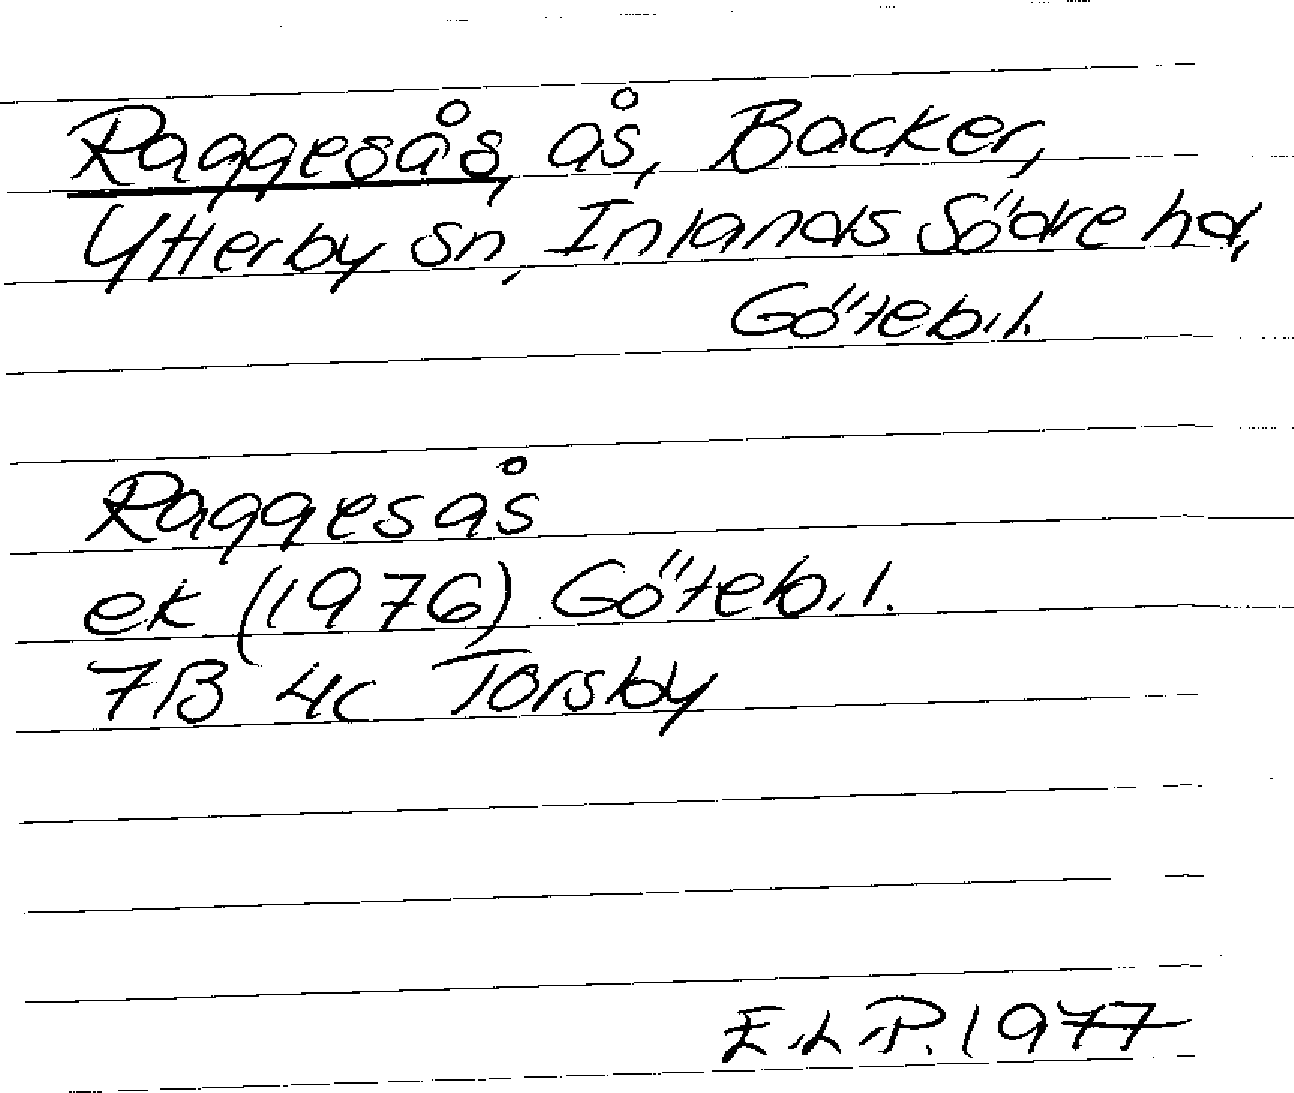 Raggesås, ås, Backer,
Ytterby sn, Inlands Södre hd,
Göteb.l.
Raggesås
ek (1976) Göteb.l.
7B 4c Torsby
E.L.P. 1977